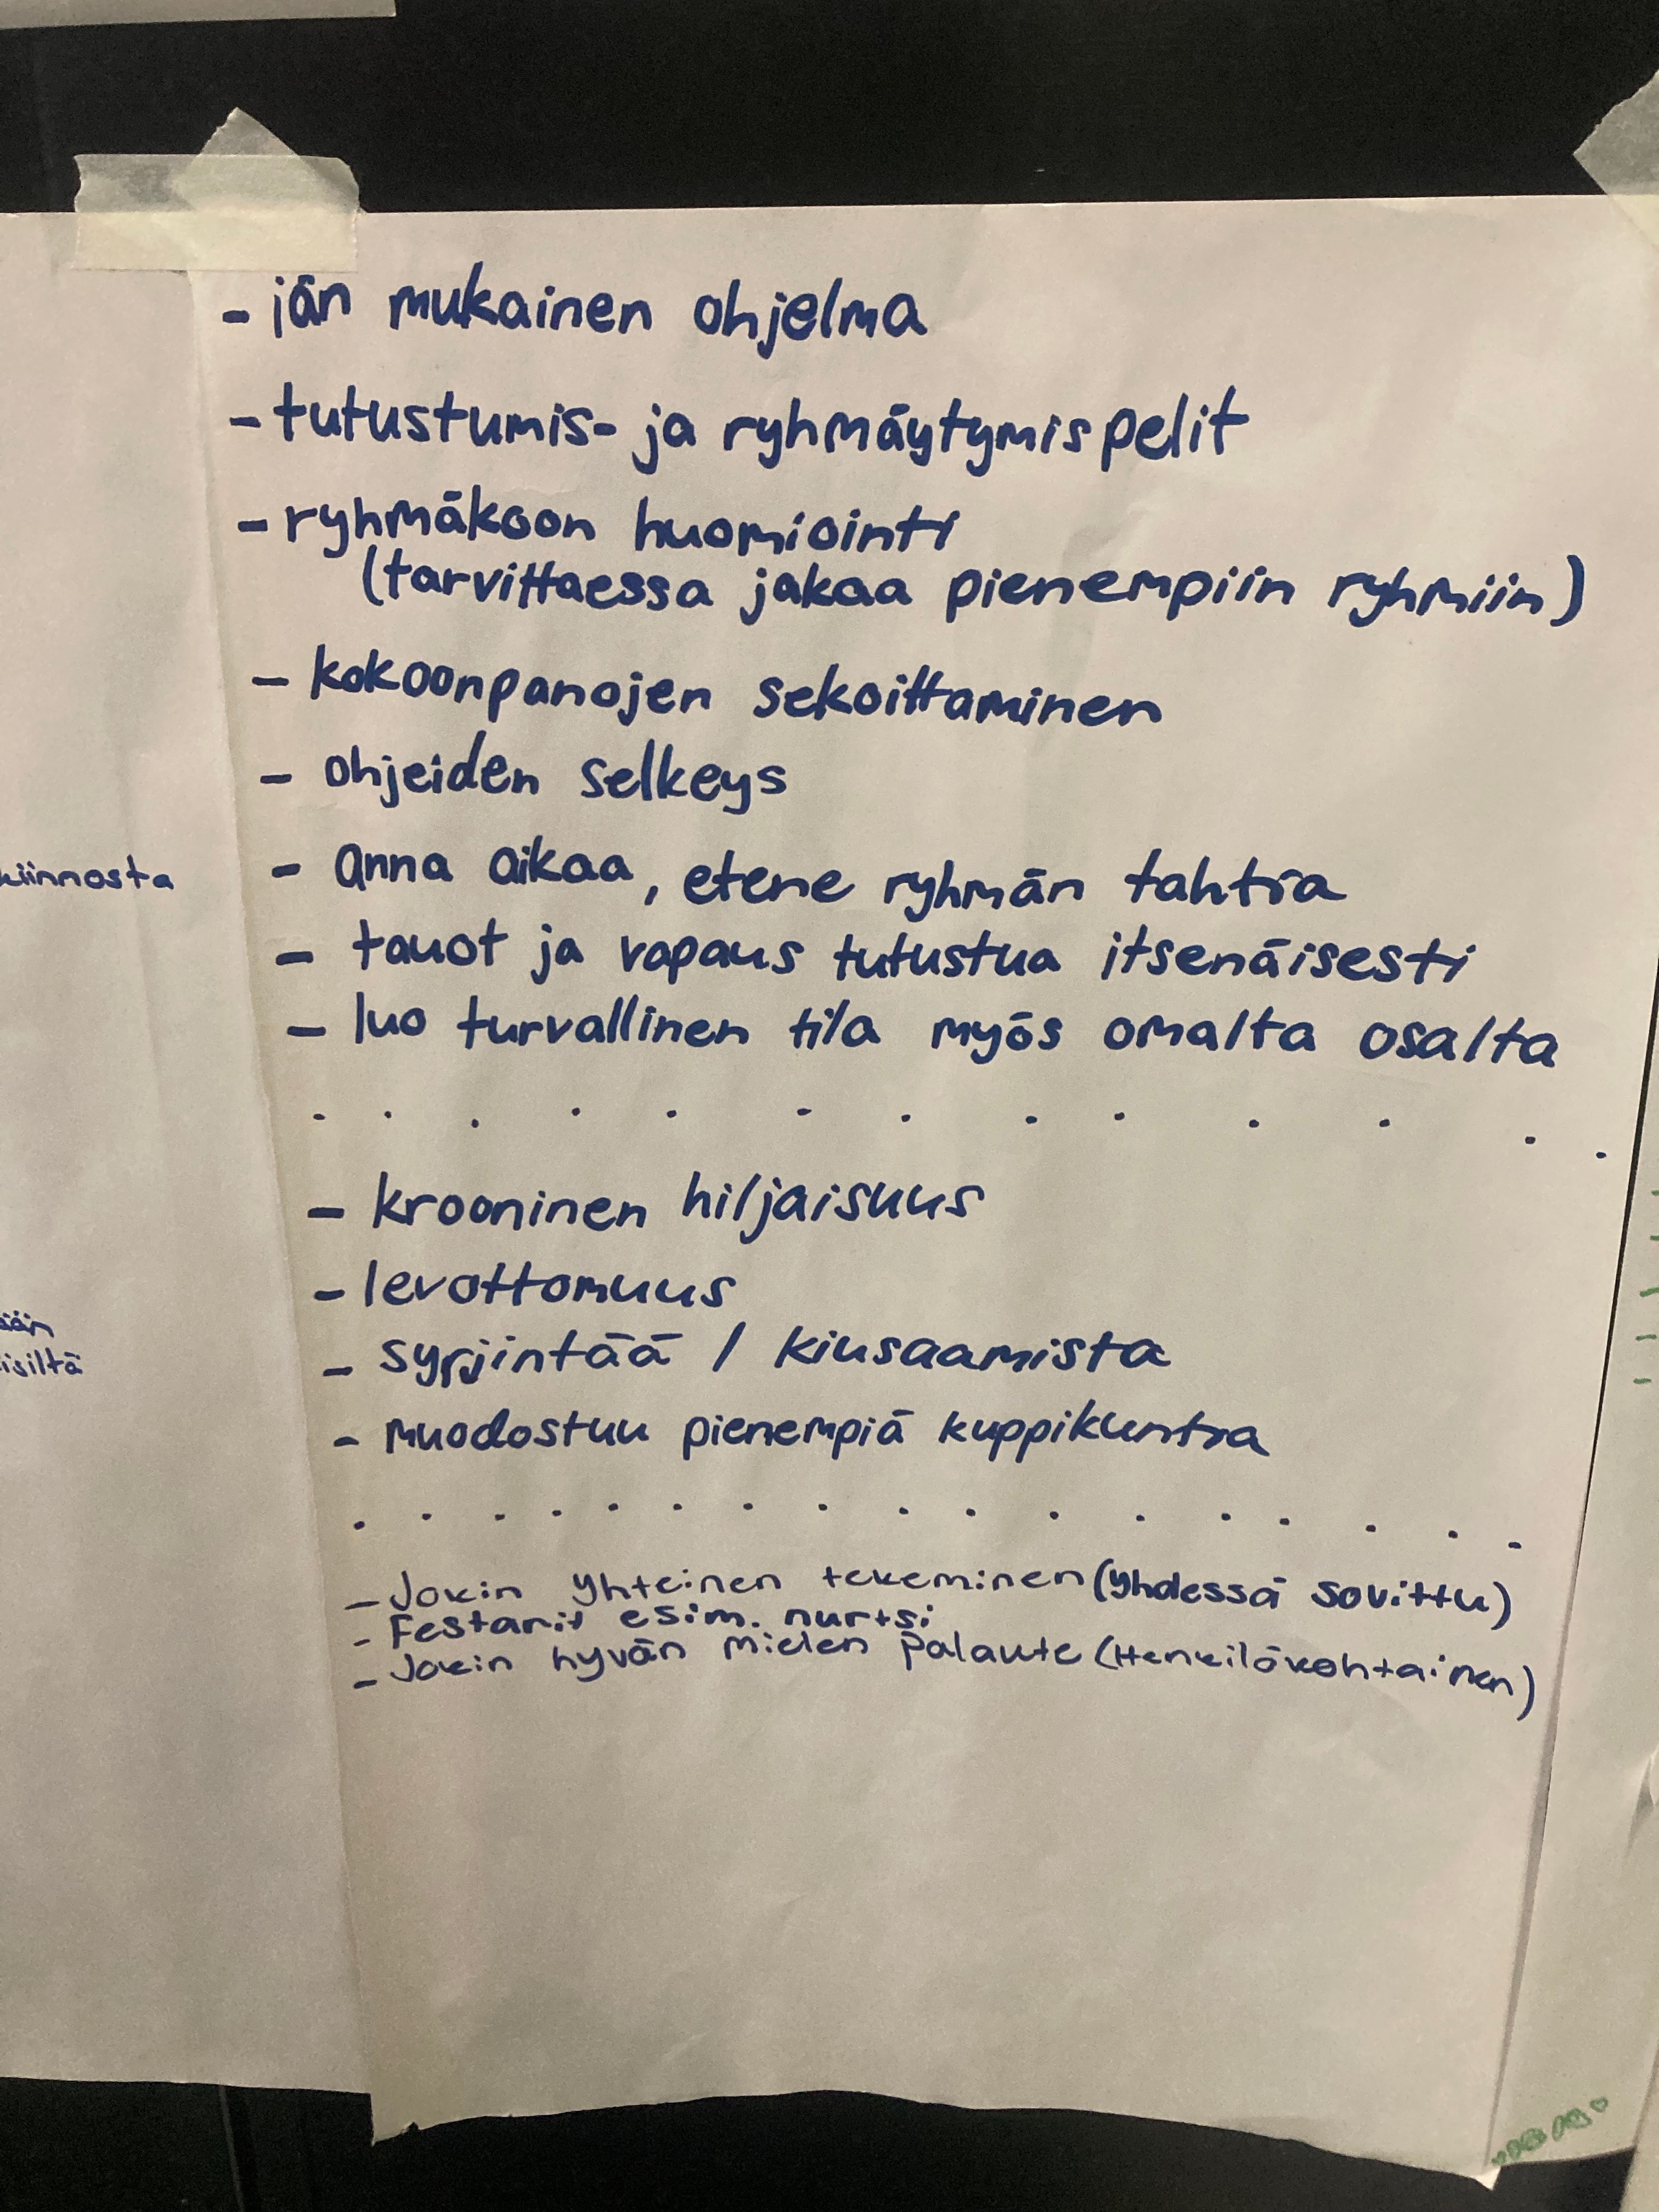 - iän mukainen ohjelma
- tutustumis- ja ryhmäytymispelit
- ryhmäkoon huomiointi
(tarvittaessa jakaa pienempiin ryhmiin)
- kokoonpanojen sekoittaminen
- ohjeiden selkeys
- anna aikaa, etene ryhmän tahtia
- tauot ja vapaus tutustua itsenäisesti
- luo turvallinen tila myös omalta osalta
. . . . . . . . . . . . .
- krooninen hiljaisuus
- levottomuus
- syrjintää / kiusaamista
- muodostuu pienempiä kuppikuntia
. . . . . . . . . . . . . . . .
- Jokin yhteinen tekeminen (yhdessä sovittu)
- Festarit esim. nurtsi
- Jokin hyvän mielen palaute (Henkilökohtainen)
kiinnosta
ään
isiltä